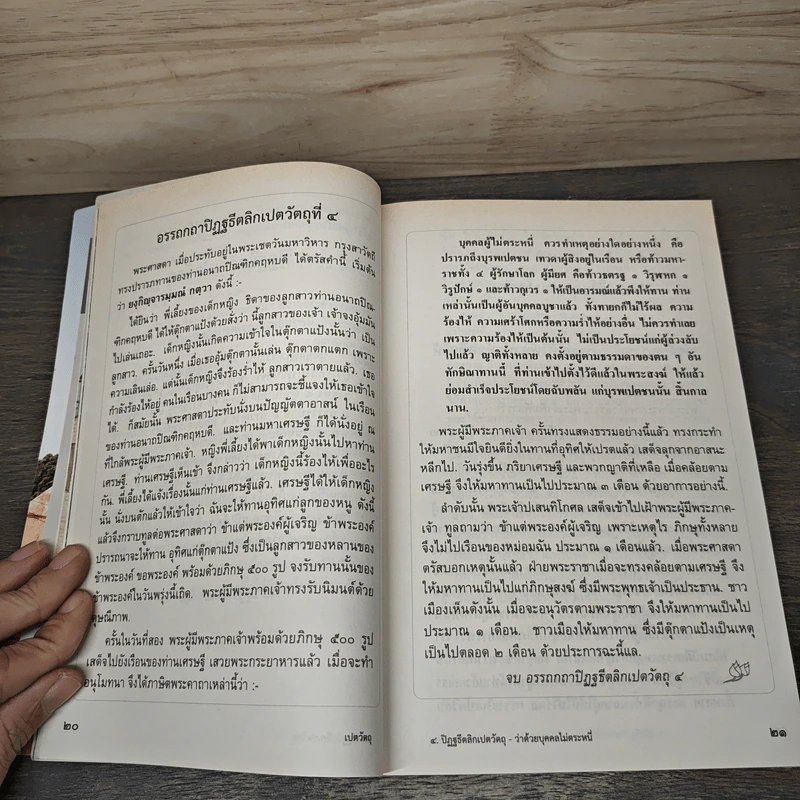 อรรถกถาปิฏฐธีตลิกเปตวัตถุที่ ๔
พระศาสดา เมื่อประทับอยู่ในพระเชตวันมหาวิหาร กรุงสาวัตถี
ทรงปรารภทานของท่านอนาถบิณฑิกคฤหบดี ได้ตรัสคำนี้ เริ่มต้น
ว่า ยงฺกิญฺจารมฺมณํ กตฺวา ดังนี้ :-
ได้ยินว่า พี่เลี้ยงของเด็กหญิง ธิดาของลูกสาวท่านอนาถบิณ-
ฑิกคฤหบดี ได้ให้ตุ๊กตาแป้งด้วยสั่งว่า นี้ลูกสาวของเจ้า เจ้าจงอุ้มมัน
ไปเล่นเถอะ. เด็กหญิงนั้นเกิดความเข้าใจในตุ๊กตาแป้งนั้นว่า เป็น
ลูกสาว. ครั้นวันหนึ่ง เมื่อเธออุ้มตุ๊กตานั้นเล่น ตุ๊กตาตกแตก เพราะ
ความเลินเล่อ. แต่นั้นเด็กหญิงจึงร้องร่ำไห้ ลูกสาวเราตายแล้ว. เธอ
กำลังร้องไห้อยู่ คนในเรือนบางคน ก็ไม่สามารถจะชี้แจงให้เธอเข้าใจ
ได้. ก็สมัยนั้น พระศาสดาประทับนั่งบนปัญญัตตาอาสน์ ในเรือน
ของท่านอนาถบิณฑิกคฤหบดี. และท่านมหาเศรษฐี ก็ได้นั่งอยู่ ณ
ที่ใกล้พระผู้มีพระภาคเจ้า. หญิงพี่เลี้ยงได้พาเด็กหญิงนั้นไปหาท่าน
เศรษฐี. ท่านเศรษฐีเห็นเข้า จึงกล่าวว่า เด็กหญิงนี้ร้องไห้เพื่ออะไร
กัน. พี่เลี้ยงได้แจ้งเรื่องนั้นแก่ท่านเศรษฐีแล้ว. เศรษฐีได้ให้เด็กหญิง
นั้น นั่งบนตักแล้วให้เข้าใจว่า ฉันจะให้ทานอุทิศแก่ลูกของหนู ดังนี้
แล้วจึงกราบทูลต่อพระศาสดาว่า ข้าแต่พระองค์ผู้เจริญ ข้าพระองค์
ปรารถนาจะให้ทาน อุทิศแก่ตุ๊กตาแป้ง ซึ่งเป็นลูกสาวของหลานของ
ข้าพระองค์ ขอพระองค์ พร้อมด้วยภิกษุ ๕๐๐ รูป จงรับทานนั้นของ
ข้าพระองค์ในวันพรุ่งนี้เถิด. พระผู้มีพระภาคเจ้าทรงรับนิมนต์ด้วย
ดุษณีภาพ.
ครั้นในวันที่สอง พระผู้มีพระภาคเจ้าพร้อมด้วยภิกษุ ๕๐๐ รูป
เสด็จไปยังเรือนของท่านเศรษฐี เสวยพระกระยาหารแล้ว เมื่อจะทำ
อนุโมทนา จึงได้ภาษิตพระคาถาเหล่านี้ว่า :-
๒๐
เปตวัตถุ
บุคคลผู้ไม่ตระหนี่ ควรทำเหตุอย่างใดอย่างหนึ่ง คือ
ปรารภถึงบุรพเปตชน เทวดาผู้สิงอยู่ในเรือน หรือท้าวมหา-
ราชทั้ง ๔ ผู้รักษาโลก ผู้มียศ คือท้าวธตรฐ ๑ วิรุฬหก ๑
วิรูปักษ์ ๑ และท้าวกุเวร ๑ ให้เป็นอารมณ์แล้วพึงให้ทาน ท่าน
เหล่านั้นเป็นผู้อันบุคคลบูชาแล้ว ทั้งทายกก็ไม่ไร้ผล ความ
ร้องไห้ ความเศร้าโศกหรือความร่ำไห้อย่างอื่น ไม่ควรทำเลย
เพราะความร้องไห้เป็นต้นนั้น ไม่เป็นประโยชน์แก่ผู้ล่วงลับ
ไปแล้ว ญาติทั้งหลาย คงตั้งอยู่ตามธรรมดาของตน ๆ อัน
ทักษิณาทานนี้ ที่ท่านเข้าไปตั้งไว้ดีแล้วในพระสงฆ์ ให้แล้ว
ย่อมสำเร็จประโยชน์โดยฉับพลัน แก่บุรพเปตชนนั้น สิ้นกาล
นาน.
พระผู้มีพระภาคเจ้า ครั้นทรงแสดงธรรมอย่างนี้แล้ว ทรงกระทำ
ให้มหาชนมีใจยินดียิ่งในทานที่อุทิศให้เปรตแล้ว เสด็จลุกจากอาสนะ
หลีกไป. วันรุ่งขึ้น ภริยาเศรษฐี และพวกญาติที่เหลือ เมื่อคล้อยตาม
เศรษฐี จึงให้มหาทานเป็นไปประมาณ ๓ เดือน ด้วยอาการอย่างนี้.
ลำดับนั้น พระเจ้าปเสนทิโกศล เสด็จเข้าไปเฝ้าพระผู้มีพระภาค-
เจ้า ทูลถามว่า ข้าแต่พระองค์ผู้เจริญ เพราะเหตุไร ภิกษุทั้งหลาย
จึงไม่ไปเรือนของหม่อมฉัน ประมาณ ๑ เดือนแล้ว. เมื่อพระศาสดา
ตรัสบอกเหตุนั้นแล้ว ฝ่ายพระราชาเมื่อจะทรงคล้อยตามเศรษฐี จึง
ให้มหาทานเป็นไปแก่ภิกษุสงฆ์ ซึ่งมีพระพุทธเจ้าเป็นประธาน. ชาว
เมืองเห็นดังนั้น เมื่อจะอนุวัตรตามพระราชา จึงให้มหาทานเป็นไป
ประมาณ ๑ เดือน. ชาวเมืองให้มหาทาน ซึ่งมีตุ๊กตาแป้งเป็นเหตุ
เป็นไปตลอด ๒ เดือน ด้วยประการฉะนี้แล.
จบ อรรถกถาปิฏฐธีตลิกเปตวัตถุ ๔
๔. ปิฏฐธีตลิกเปตวัตถุ - ว่าด้วยบุคคลไม่ตระหนี่
๒๑